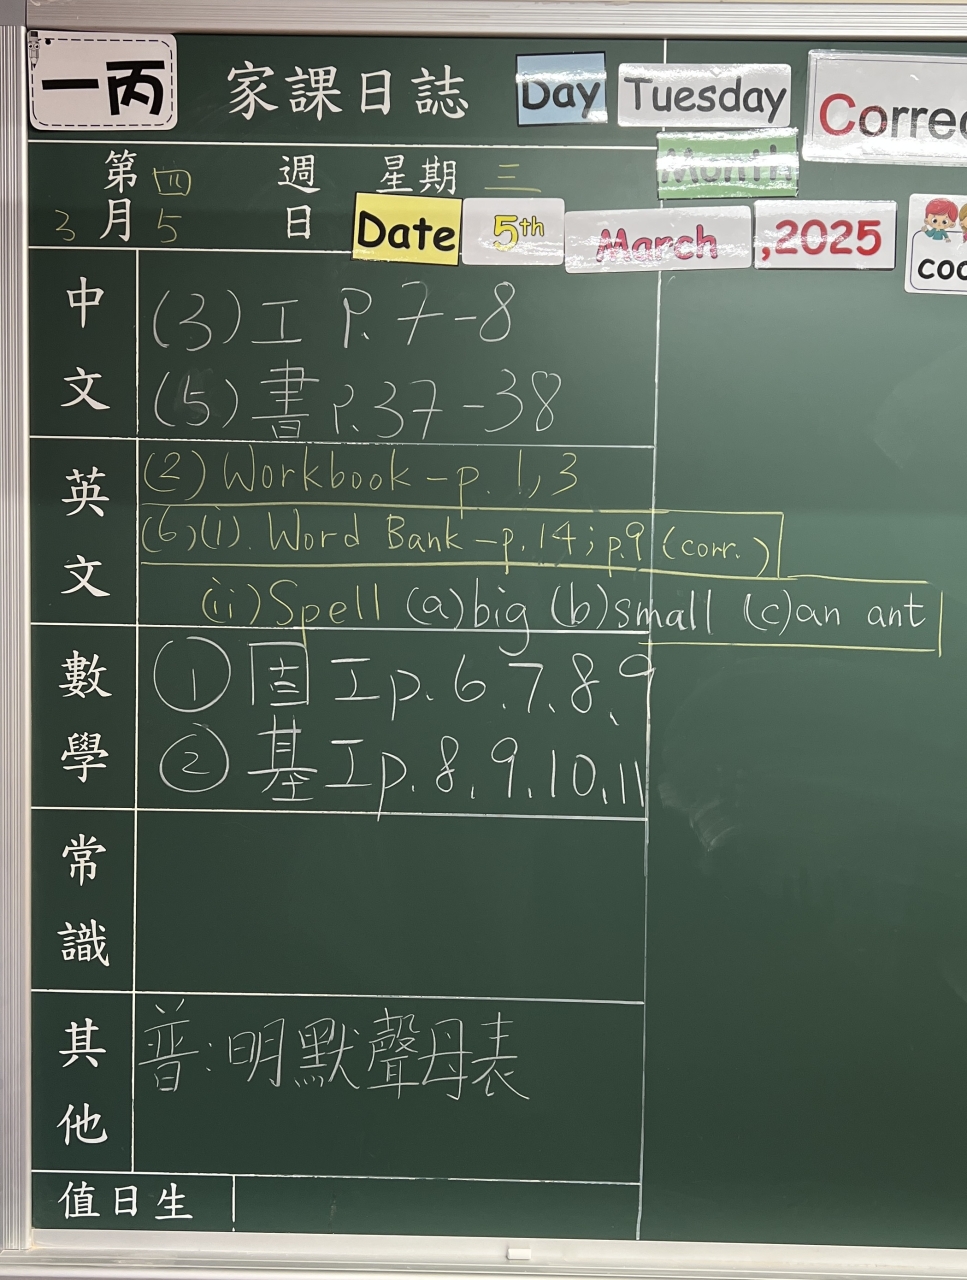 一丙 家課日誌 Day Tuesday
Month
第四週 星期三
3月5日 Date 5th March ,2025
中文
(3)工 P.7-8
(5)書P.37-38
英文
(2) Workbook - p. 1,3
(6)(i). Word Bank - p.14; p.9 (corr.)
(ii) Spell (a) big (b) small (c) an ant
數學
① 固 工p.6、7、8、9
② 基工p.8、9、10、11
常識
其他
普:明默聲母表
值日生